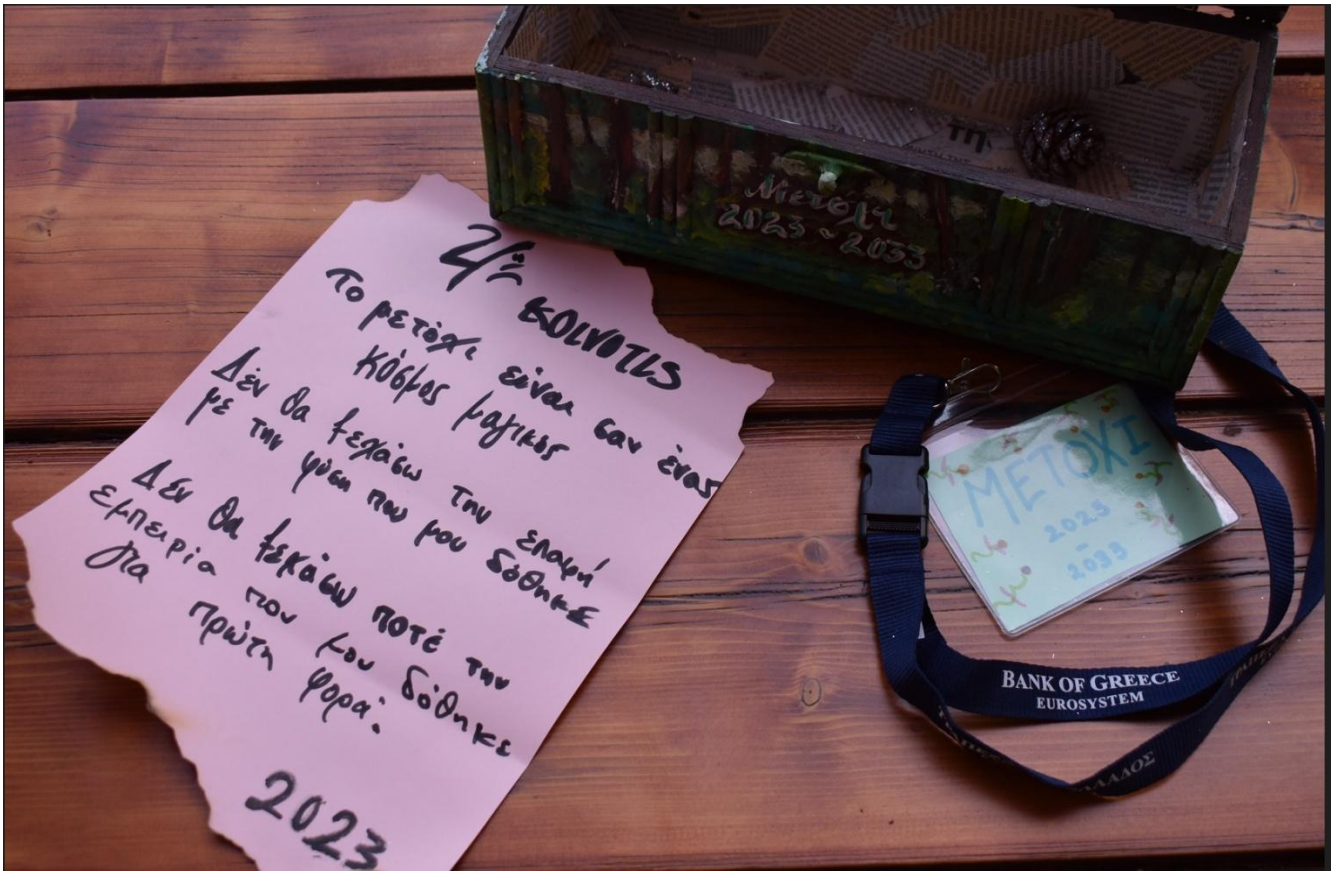 4ης κοινότις
Το μετόχι είναι σαν ένας
κόσμος μαγικός
Δέν θα ξεχάσω την επαφή
με την φύση που μου δόθηκε
Δέν θα ξεχάσω ποτέ την
εμπειρία που μου δόθηκε
για πρώτη φορά.
2023
Μετόχι
2023-2033
ΜΕΤΟΧΙ
2023
-
2033
BANK OF GREECE
EUROSYSTEM